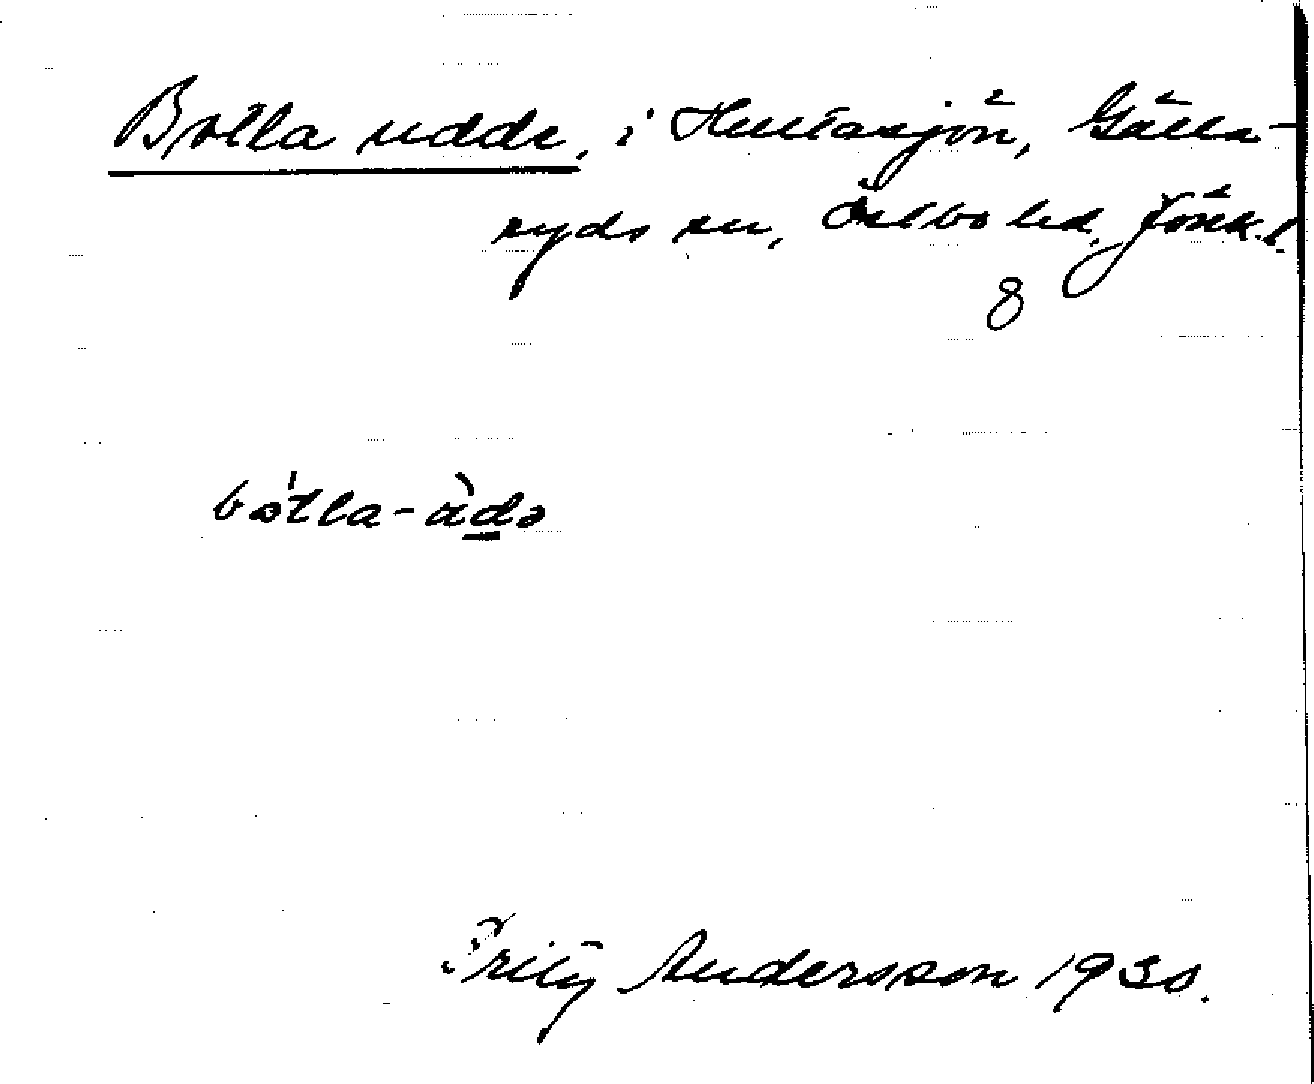 Bolla udde, i Hultasjön, Gälla-
ryds sn, Östbo hd, Jönk. l.
8
Fritz Andersson 1930.